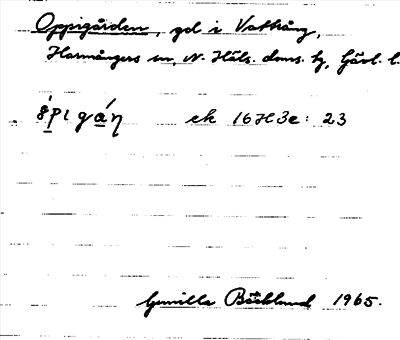 Oppigården, gd i Vattrång,
Harmångers sn, N. Häls. doms. tg, Gävl. l.
ek 16H3e: 23
Gunilla Böcklund 1965.